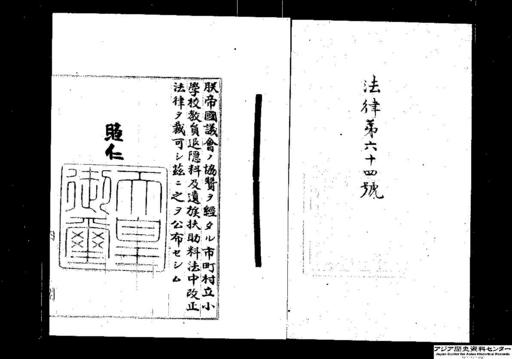 法律第六十四號
朕帝國議會ノ協贊ヲ經タル市町村立小
學校教員退隱料及遺族扶助料法中改正
法律ヲ裁可シ茲ニ之ヲ公布セシム
睦仁
天皇
御璽
アジア歴史資料センター
Japan Center for Asian Historical Records